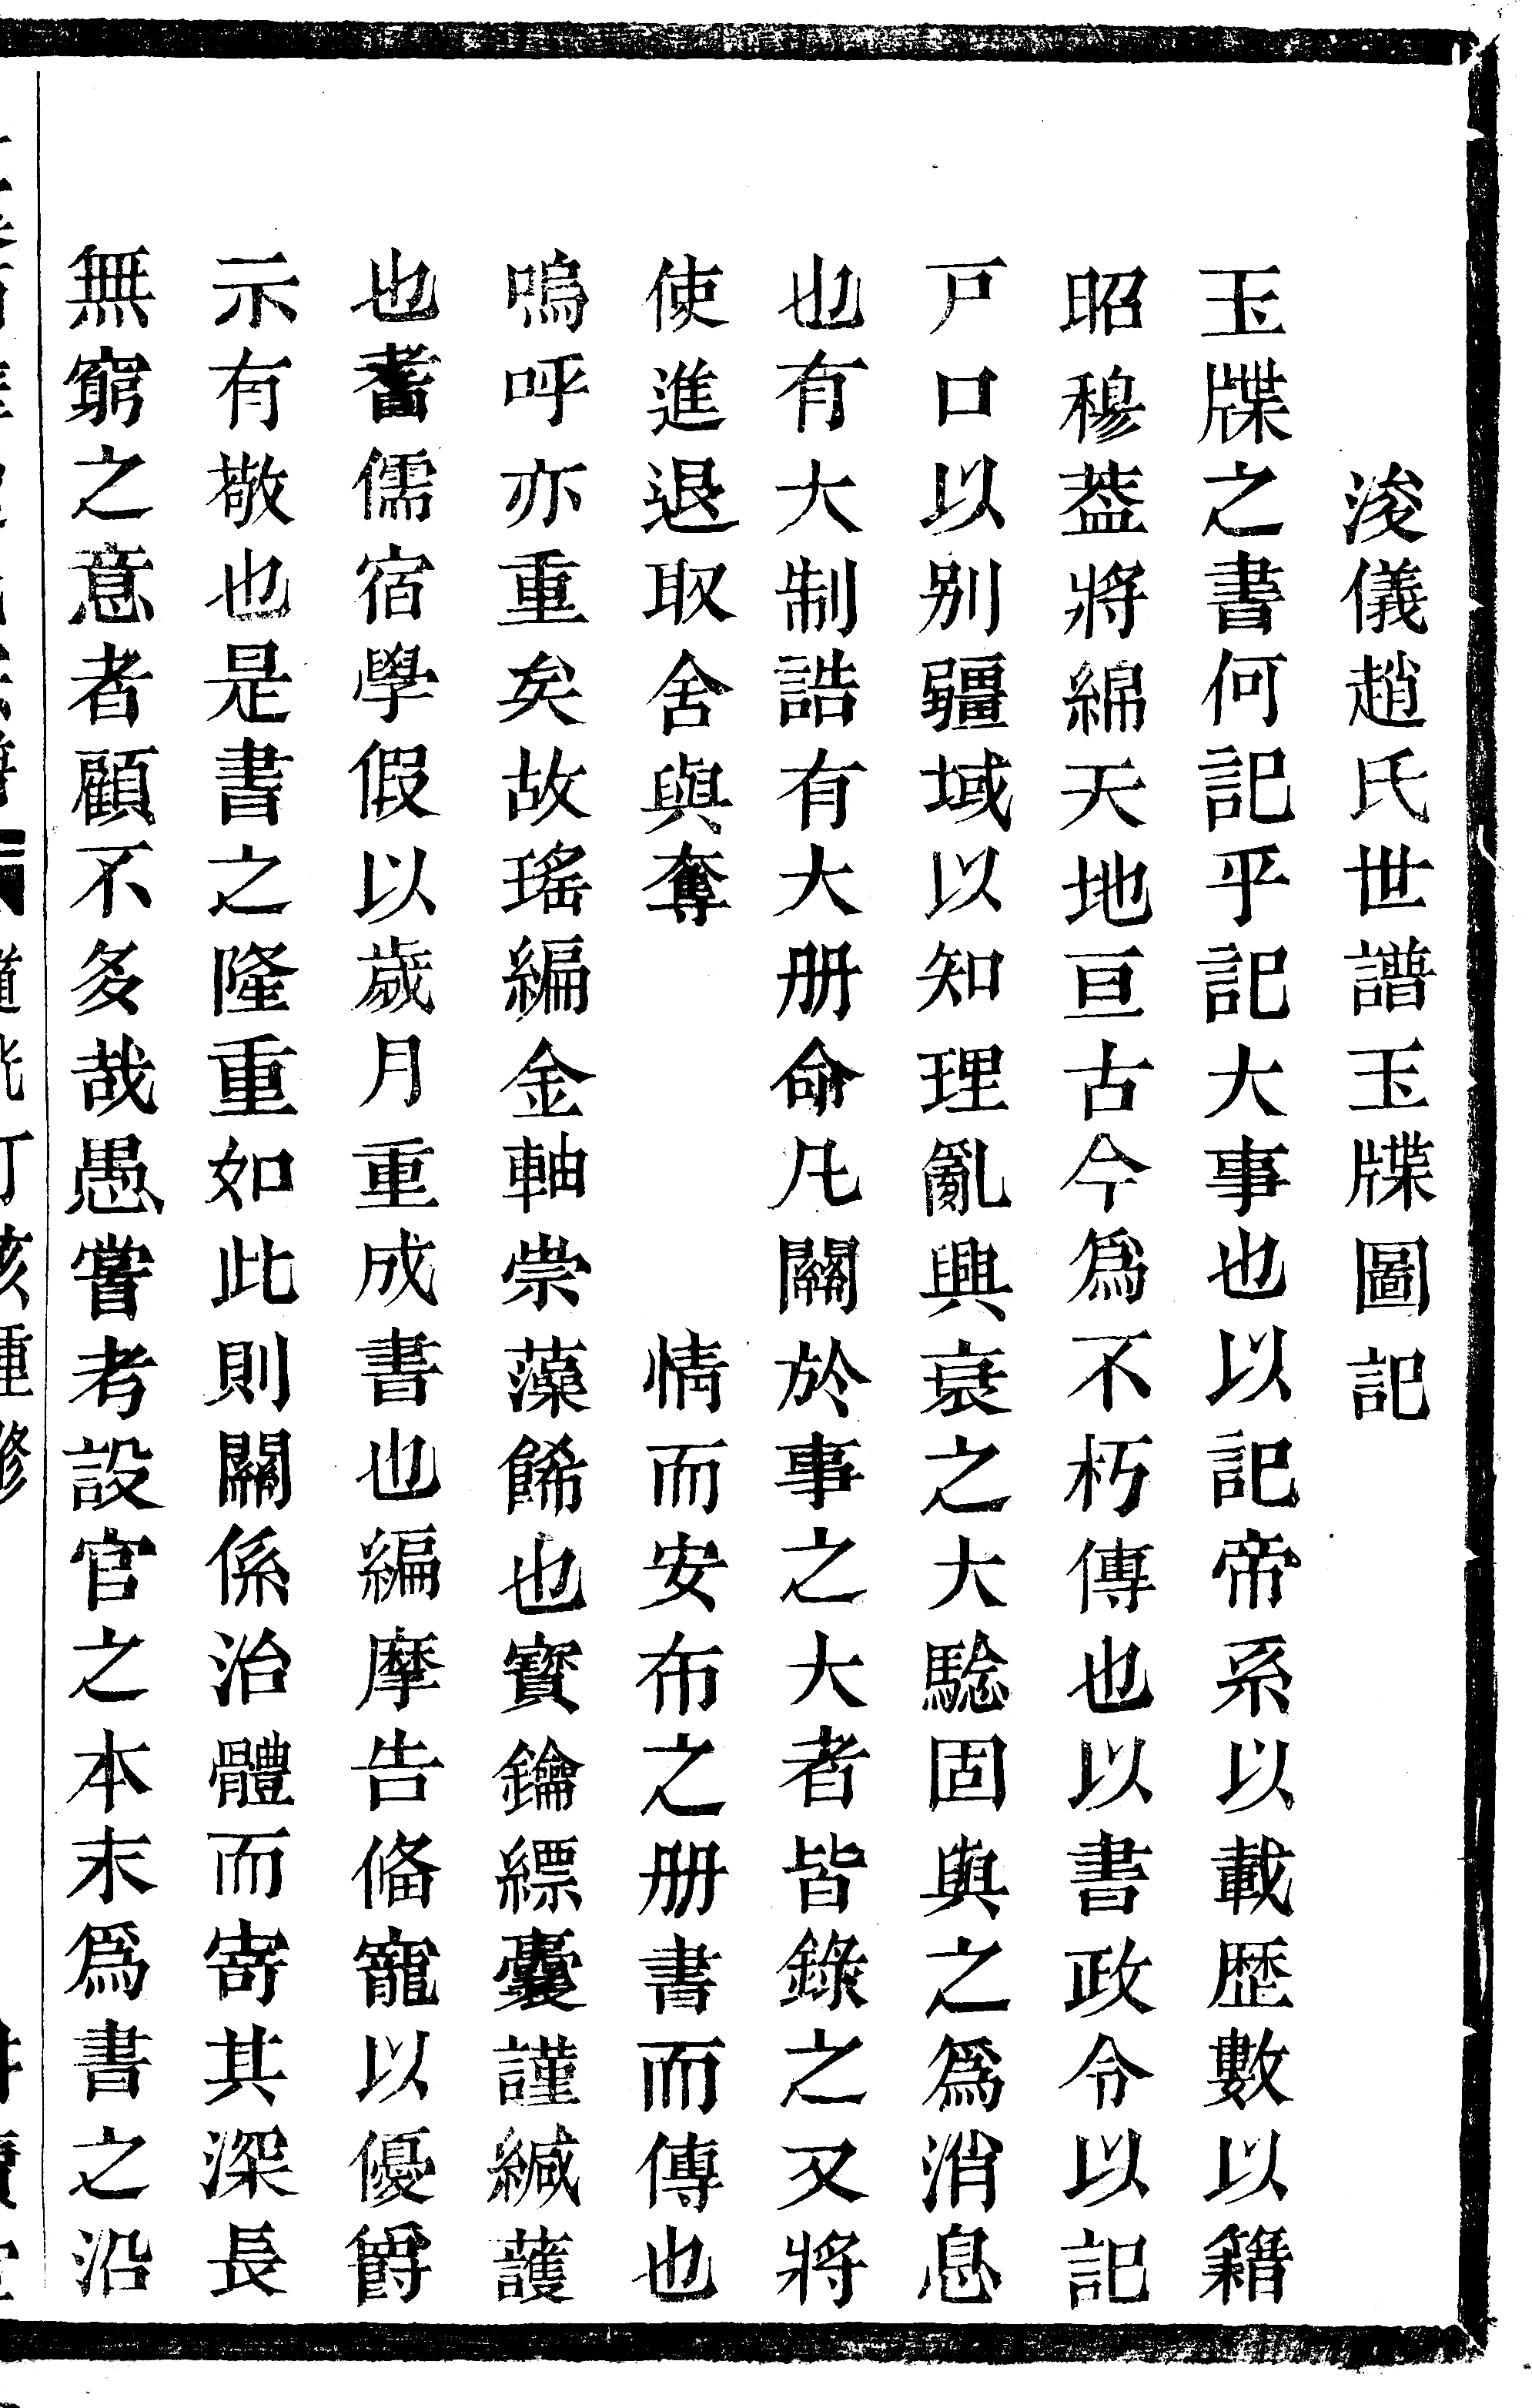 浚儀趙氏世譜玉牒圖記
玉牒之書何記乎記大事也以記帝系以載歷數以籍
昭穆葢將綿天地亘古今爲不朽傳也以書政令以記
戸口以别疆域以知理亂興衰之大騐固與之爲消息
也有大制誥有大册命凡關於事之大者皆錄之又將
使進退取舍與奪　　　情而安布之册書而傳也
嗚呼亦重矣故瑤編金軸崇藻餙也寳鑰縹囊謹緘護
也耆儒宿學假以歲月重成書也編摩告偹寵以優爵
示有敬也是書之隆重如此則關係治體而寄其深長
無窮之意者顧不多哉愚嘗考設官之本末爲書之沿